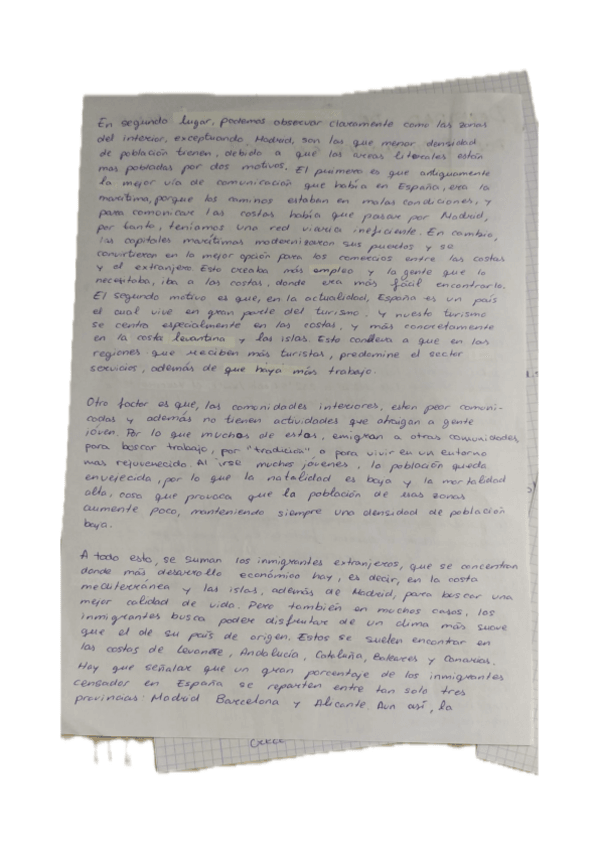 En segundo lugar, podemos observar claramente como las zonas
del interior, exceptuando, Madrid, son las que menor densidad
de población tienen, debido a que las areas litorales están
mas pobladas por dos motivos. El primero es que antiguamente
la mejor vía de comunicación que había en España, era la
marítima, porque los caminos estaban en malas condiciones, y
para comunicar las costas había que pasar por Madrid,
por tanto, teníamos una red viaria ineficiente. En cambio,
las capitales marítimas modernizaron sus puertos y se
convirtieron en la mejor opción para los comercios entre las costas
y el extranjero. Esto creaba más empleo y la gente que lo
necesitaba, iba a las costas, donde era más fácil encontrarlo.
El segundo motivo es que, en la actualidad, España es un país
el cual vive en gran parte del turismo. Y nuestro turismo
se centra especialmente en las costas, y más concretamente
en la costa levantina y las islas. Esto conlleva a que en las
regiones que reciben más turistas, predomine el sector
servicios, además de que haya más trabajo.
Otro factor es que, las comunidades interiores, estan peor comuni-
cadas y además no tienen actividades que atraigan a gente
jóven. Por lo que muchos de estos, emigran a otras comunidades
para buscar trabajo, por "tradición" o para vivir en un entorno
mas rejuvenecido. Al irse muchos jóvenes, la población queda
envejecida, por lo que la natalidad es baja y la mortalidad
alta, cosa que provoca que la población de esas zonas
aumente poco, manteniendo siempre una densidad de población
baja.
A todo esto, se suman los inmigrantes extranjeros, que se concentran
donde más desarrollo económico hay, es decir, en la costa
mediterránea y las islas, además de Madrid, para buscar una
mejor calidad de vida. Pero también en muchos casos, los
inmigrantes busca poder disfrutar de un clima más suave
que el de su país de origen. Estos se suelen encontrar en
las costas de Levante, Andalucía, Cataluña, Baleares y Canarias.
Hay que señalar que un gran porcentaje de los inmigrantes
censados en España se reparten entre tan solo tres
provincias: Madrid Barcelona y Alicante. Aun así, la